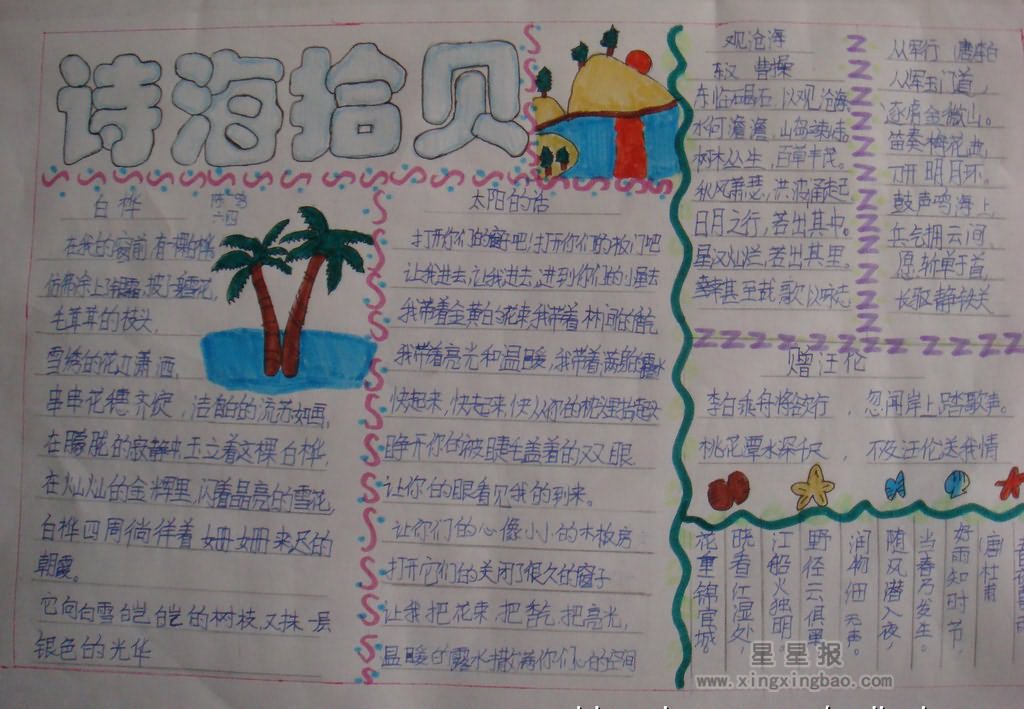 诗海拾贝
白桦
在我的窗前有一棵白桦
仿佛涂上银霜,披了雪花,
毛茸茸的枝头,
雪绣的花边潇洒,
串串花穗齐绽,洁白的流苏如画,
在朦胧的寂静中,玉立着这棵白桦,
在灿灿的金辉里,闪着晶亮的雪花,
白桦四周徜徉着姗姗来迟的
朝霞。
它向白雪皑皑的树枝,又抹一层
银色的光华
太阳的话
打开你们的窗子吧!打开你们的板门吧
让我进去,让我进去,进到你们的小屋去
我带着金黄的花束,我带着林间的香气
我带着亮光和温暖,我带着满身的露水
快起来,快起来,快从你的枕头里抬起头
睁开你的被睫毛盖着的双眼
让你的眼看见我的到来。
让你们的心像小小的木板房
打开它们的关闭了很久的窗子
让我把花束,把香气,把亮光,
温暖的露水撒满你们心的空间
观沧海
东汉 曹操
东临碣石,以观沧海
水何澹澹,山岛竦峙
树木丛生,百草丰茂。
秋风萧瑟,洪波涌起
日月之行,若出其中。
星汉灿烂,若出其里。
幸甚至哉,歌以咏志
从军行 唐 李白
从军玉门道,
逐虏金微山。
笛奏梅花曲,
刀开明月环。
鼓声鸣海上,
兵气拥云间,
愿斩单于首,
长驱静铁关
赠汪伦
李白乘舟将欲行,忽闻岸上踏歌声。
桃花潭水深千尺,不及汪伦送我情
唐 杜甫
好雨知时节,
当春乃发生。
随风潜入夜,
润物细无声。
野径云俱黑
江船火独明。
晓看红湿处,
花重锦官城
星星报
www.xingxingbao.com